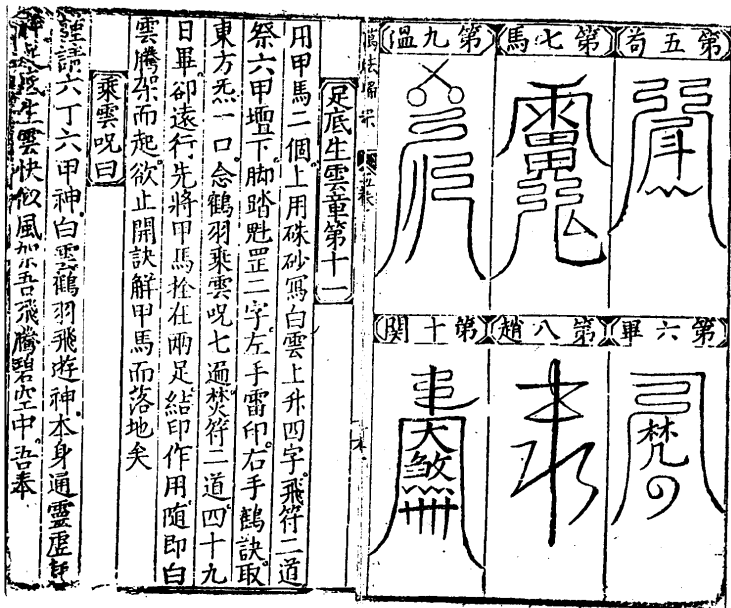 第五苟
第七馬
第九溫
第六畢
第八趙
第十関
萬法歸宗
足底生雲章第十一
用甲馬二個上用硃砂寫白雲上升四字飛符二道
祭六甲壇下脚踏魁罡二字左手雷印右手鶴訣取
東方炁一口念鶴羽乘雲呪七遍焚符二道四十九
日畢卻遠行先將甲馬拴在兩足結印作用隨即白
雲騰架而起欲止開訣解甲馬而落地矣
乘雲呪曰
謹請六丁六甲神白雲鶴羽飛遊神本身通靈虛
足底生雲快似風如吾飛騰碧空中吾奉